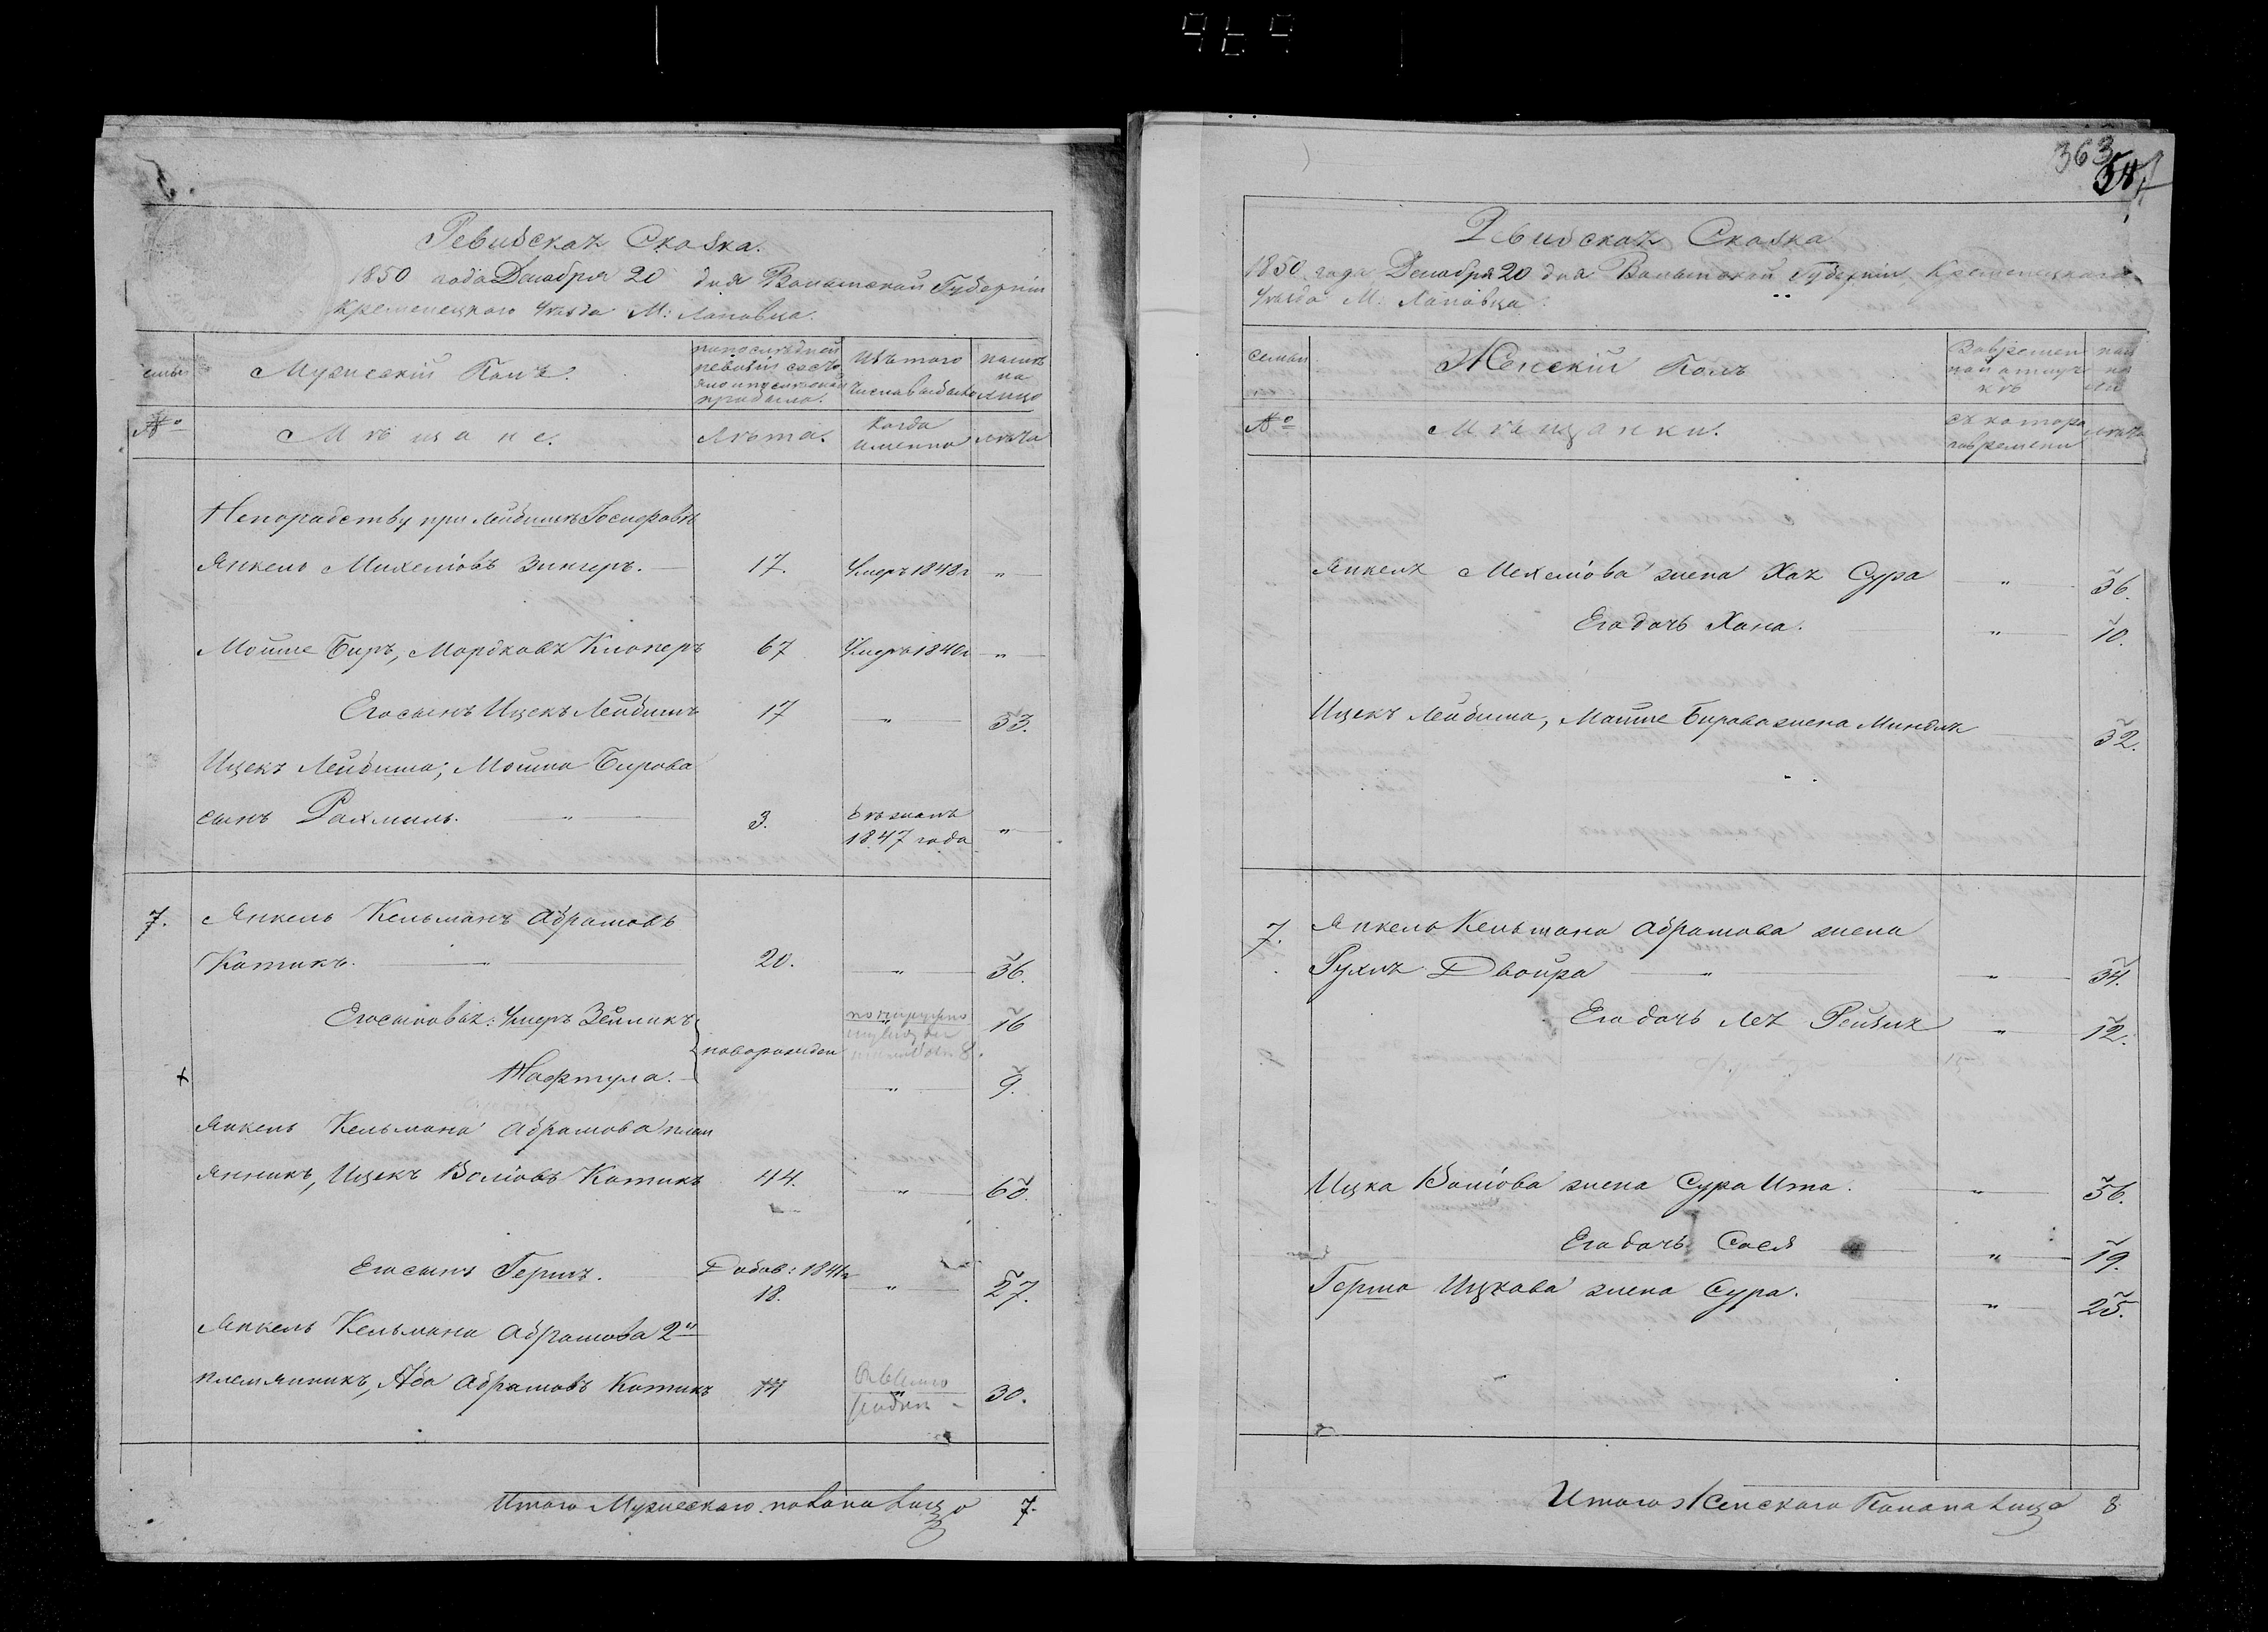 Ревизская Сказка.
1850 года Декабря 20 дня Волынской Губерніи
Кременецкого Уѣзда М: Лановца.
семьи
Мужескій Полъ.
по последней
ревизіи состо
яло и после оной
прибыло.
Изъ того
числа выбыло
ныне
на
лицо
№
Мѣщане.
Лѣта.
Когда
именно
лѣта
Непорадству при Лейбишѣ Іосифовѣ
Янкель Михеліовъ Зингеръ.
17.
Умеръ 1848г
"
Мошше Биръ, Мордковъ Клоперъ
67
Умеръ 1840г
"
Его сынъ Ицекъ Лейбишъ
17
"
33.
Ицекъ Лейбиша, Мошка Бирова
сынъ Рахмиль.
"
3.
бѣжалъ
1847 года
"
7.
Янкель Кельманъ Абрамовъ
Котикъ.
"
20.
"
36.
Его сыновья: Умеръ Зейликъ
16
новорожден
Нафтула.
"
9.
Янкель Кельмана Абрамова плем
янникъ, Ицекъ Воліовъ Котикъ
44.
"
60.
Его сынъ Гершъ.
Добав: 1841г
18.
"
27.
Янкель Кельмана Абрамова 2й
племянникъ, Аба Абрамовъ Котикъ
14
30.
Итого Мужескаго пола на лицо 7.
363
Ревизская Сказка
1850 года Декабря 20 дня Волынской Губерніи, Кременецкаго
Уѣзда М. Лановца
семьи
Женскій Полъ
Во времен
ной отлуч
кѣ
№
Мѣщанки.
съ котора
го времени
лѣта
Янкеля Мехеліова жена Хая Сура
"
36.
Его дочь Хана.
"
10.
Ицекъ Лейбиша, Мошше Бирова жена Миндля
32.
7.
Янкель Кельмана Абрамова жена
Рухля Двойра
"
"
34.
Его дочь Лея Рейзля
"
12.
Ицка Воліова жена Сура Ита.
"
56.
Его дочь Сося
"
19.
Герша Ицкова жена Сура.
"
25.
Итого Женскаго Пола на лицо 8